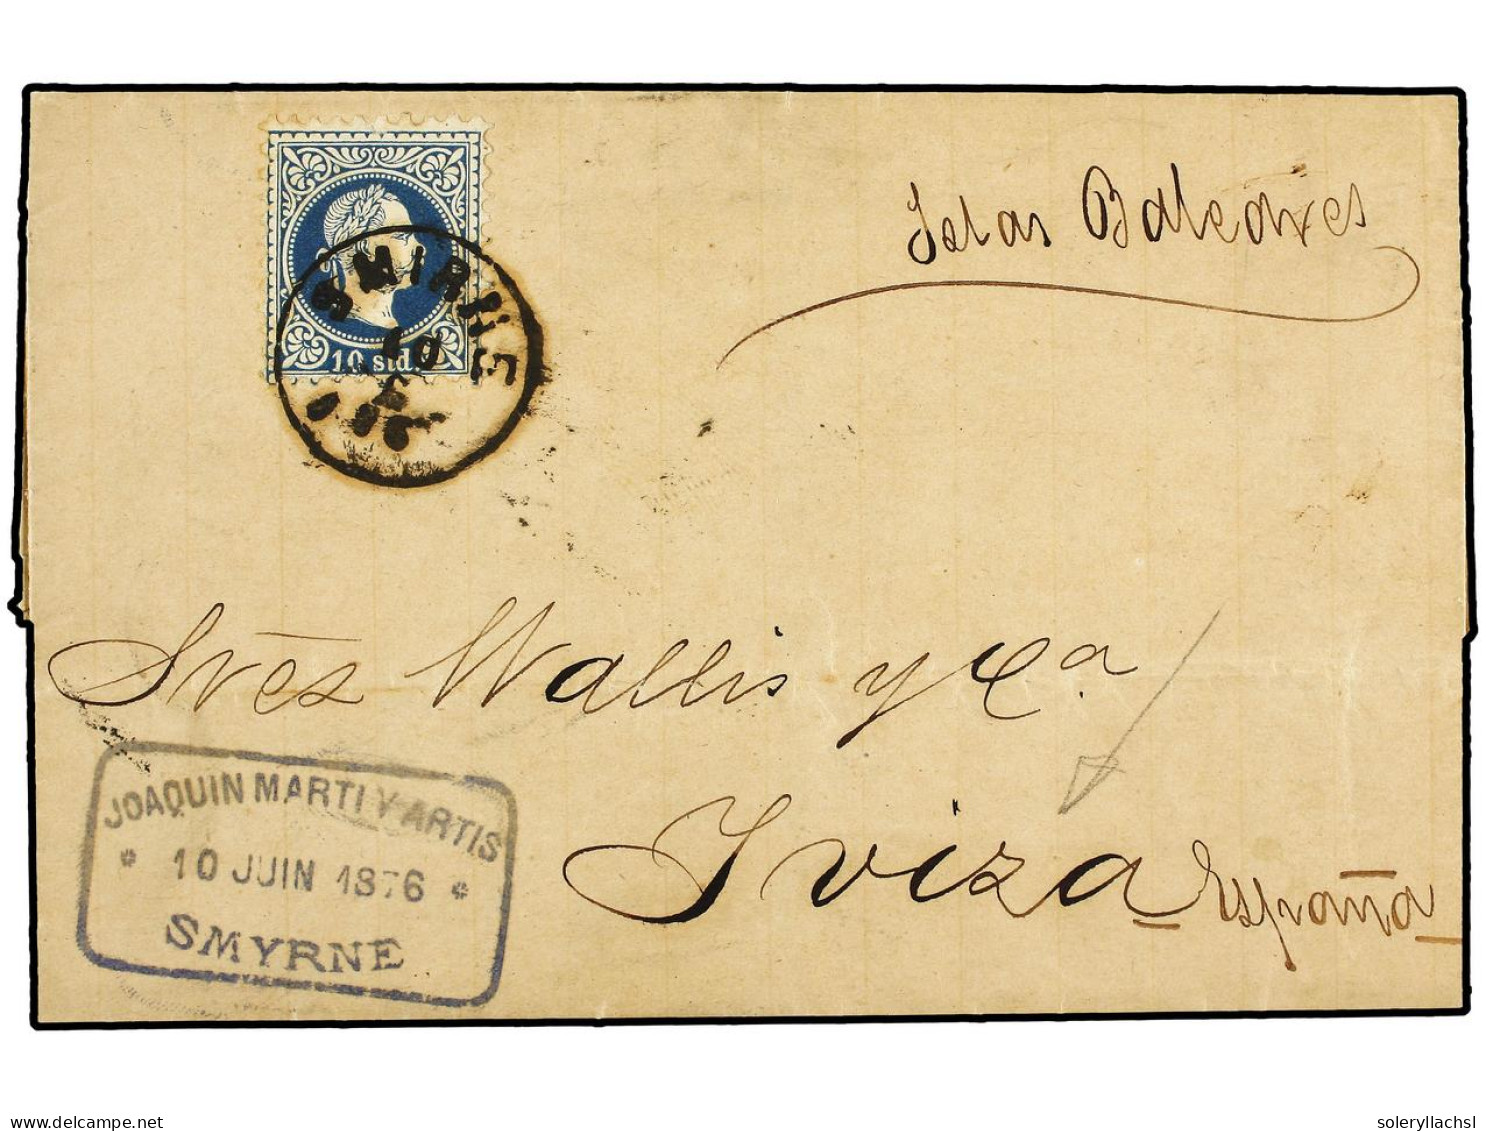 Islas Baleares
SMIRNE
10
10 sld.
Srès Wallis y Ca
JOAQUIN MARTI Y ARTIS
* 10 JUIN 1876 *
SMYRNE
Iviza España
delcampe.net
soleryllachsl